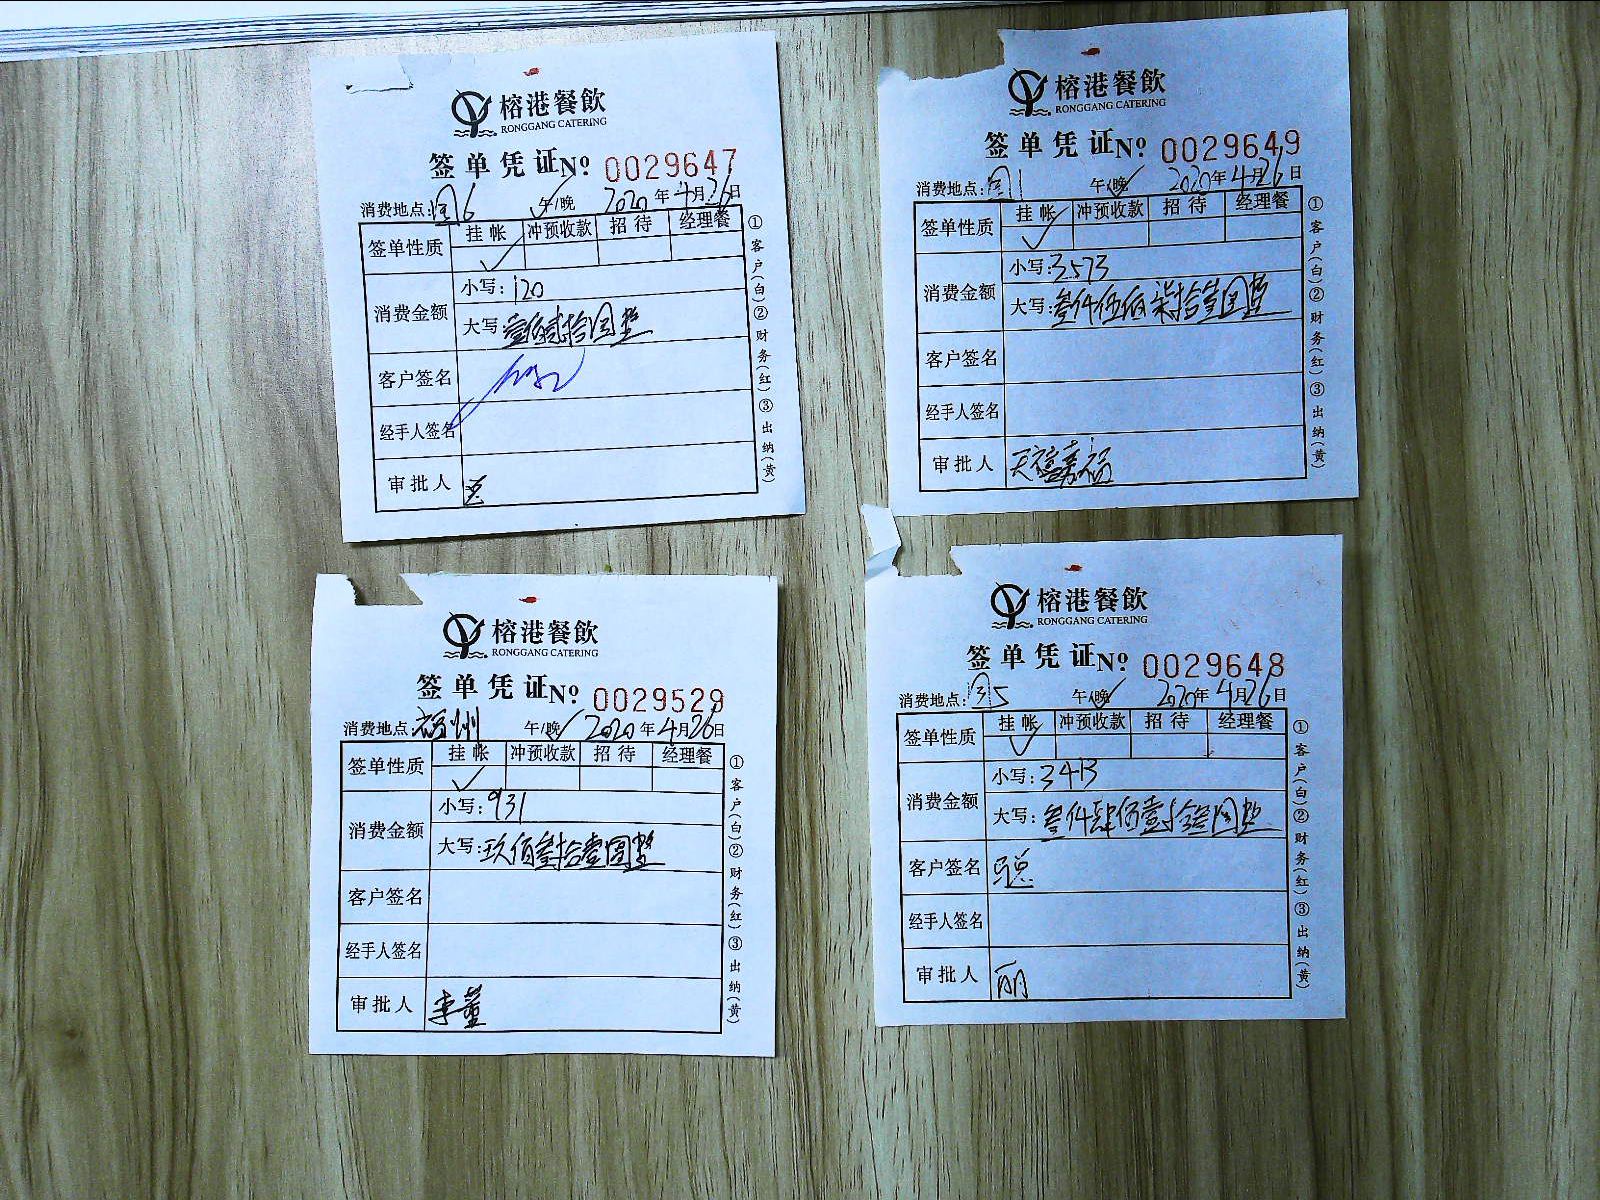 榕港餐飲
RONGGANG CATERING
签单凭证 № 0029647
消费地点: 午/晚 2020年4月26日
签单性质 挂帐 冲预收款 招待 经理餐
消费金额
小写: 120
大写: 壹佰贰拾圆整
客户签名
经手人签名
审批人
①客户(白)②财务(红)③出纳(黄)
榕港餐飲
RONGGANG CATERING
签单凭证 № 0029649
消费地点: 午/晚 2020年4月26日
签单性质 挂帐 冲预收款 招待 经理餐
消费金额
小写: 3573
大写: 叁仟伍佰柒拾叁圆整
客户签名
经手人签名
审批人 天禧
①客户(白)②财务(红)③出纳(黄)
榕港餐飲
RONGGANG CATERING
签单凭证 № 0029529
消费地点: 福州 午/晚 2020年4月26日
签单性质 挂帐 冲预收款 招待 经理餐
消费金额
小写: 931
大写: 玖佰叁拾壹圆整
客户签名
经手人签名
审批人 李董
①客户(白)②财务(红)③出纳(黄)
榕港餐飲
RONGGANG CATERING
签单凭证 № 0029648
消费地点: 午/晚 2020年4月26日
签单性质 挂帐 冲预收款 招待 经理餐
消费金额
小写: 3413
大写: 叁仟肆佰壹拾叁圆整
客户签名
经手人签名
审批人 丽
①客户(白)②财务(红)③出纳(黄)